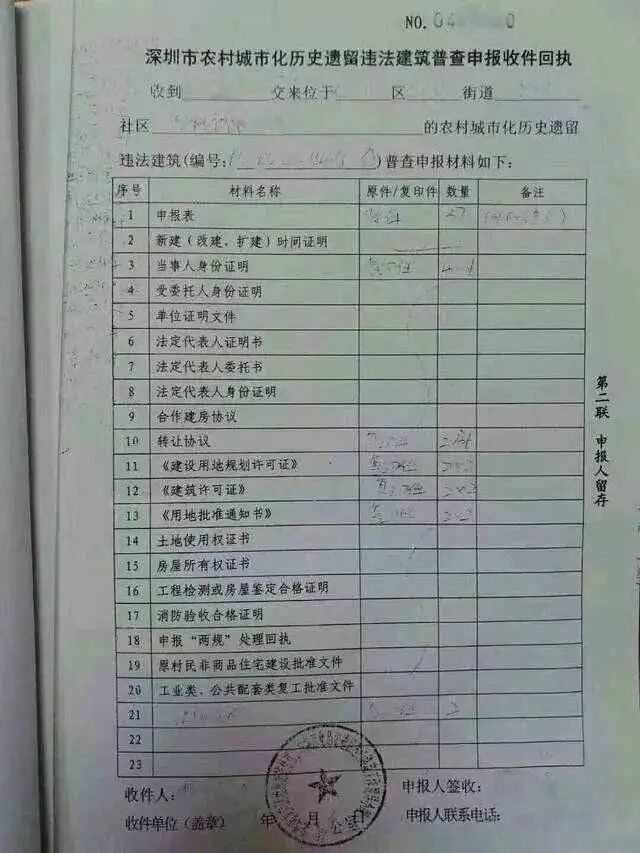 NO.
深圳市农村城市化历史遗留违法建筑普查申报收件回执
收到 交来位于 区 街道
社区 的农村城市化历史遗留
违法建筑(编号: )普查申报材料如下:
序号 材料名称 原件/复印件 数量 备注
1 申报表
2 新建（改建、扩建）时间证明
3 当事人身份证明 复印件
4 受委托人身份证明
5 单位证明文件
6 法定代表人证明书
7 法定代表人委托书
8 法定代表人身份证明
9 合作建房协议
10 转让协议 复印件
11 《建设用地规划许可证》 复印件
12 《建筑许可证》 复印件
13 《用地批准通知书》 复印件
14 土地使用权证书
15 房屋所有权证书
16 工程检测或房屋鉴定合格证明
17 消防验收合格证明
18 申报“两规”处理回执
19 原村民非商品住宅建设批准文件
20 工业类、公共配套类复工批准文件
21
22
23
第二联 申报人留存
收件人: 申报人签收:
收件单位（盖章） 年 月 日 申报人联系电话: